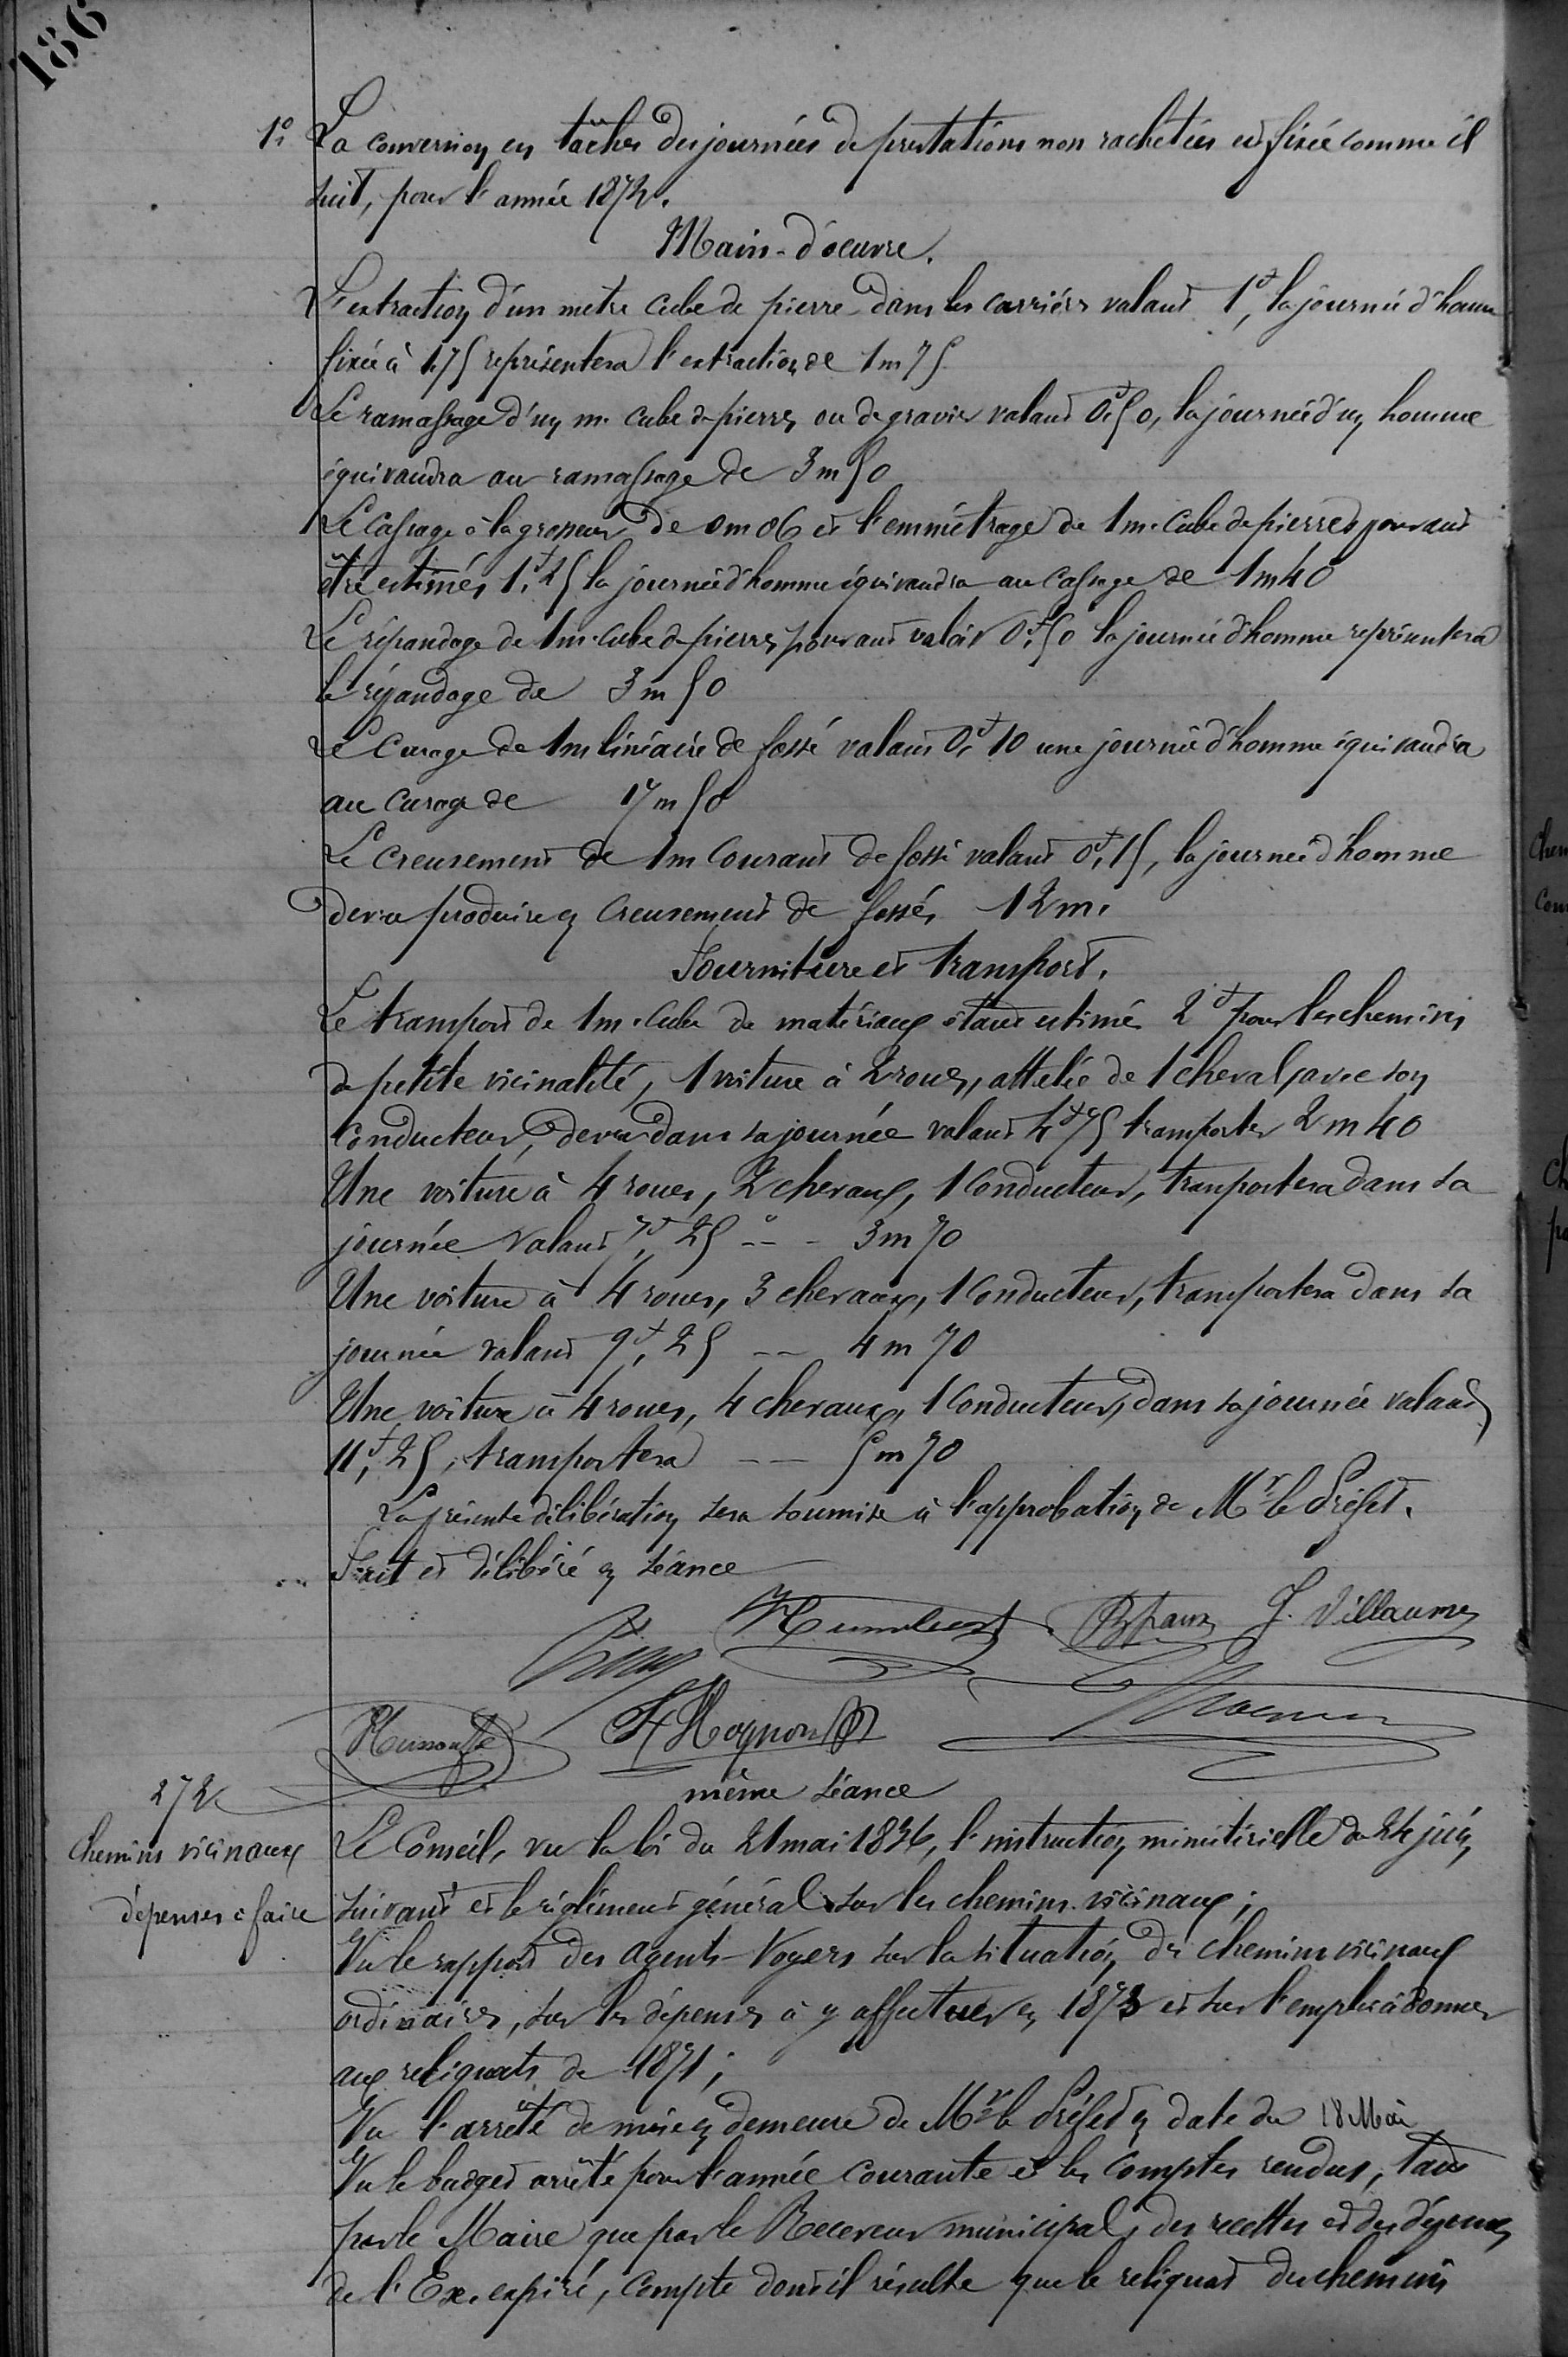 186
1° La conversion en tâches des journées de prestations non rachetées est fixée comme il
suit, pour l'année 1872.
Main-d'oeuvre.
L'extraction d'un mètre cube de pierre dans les carrières valant 1f, la journée d'homme
fixée à 1.75 représentera l'extraction de 1m75
Le ramassage d'un m. cube de pierres ou de gravier valant 0f,50, la journée d'un homme
équivaudra au ramassage de 3m50
Le cassage à la grosseur de 0m06 et l'emmétrage de 1m. cube de pierres pouvant
être estimés 1f,25 la journée d'homme équivaudra au cassage de 1m40
Le répandage de 1m. cube de pierres pouvant valoir 0f,50 la journée d'homme représentera
le répandage de 3m50
Le curage de 1m linéaire de fossé valant 0f,10 une journée d'homme équivaudra
au curage de 17m50
Le creusement de 1m courant de fossé valant 0f,15, la journée d'homme
devra produire en creusement de fossés 12m.
Fourniture et transport.
Le transport de 1m. cube de matériaux étant estimé 2f pour les chemins
de petite vicinalité, 1 voiture à 2 roues, attelée de 1 cheval, avec son
conducteur, devra dans sa journée valant 4f75 transporter 2m40
Une voiture à 4 roues, 2 chevaux, 1 conducteur, transportera dans sa
journée valant 7f,25 -- - 3m70
Une voiture à 4 roues, 3 chevaux, 1 conducteur, transportera dans sa
journée valant 9f,25 -- 4m70
Une voiture à 4 roues, 4 chevaux, 1 conducteur, dans sa journée valant
11f,25, transportera -- 5m70
La présente délibération sera soumise à l'approbation de Mr le Préfet.
Fait et délibéré en séance
Humbert J. Villaume
F Hognon
même séance
272
Chemins vicinaux
dépenses à faire
Le Conseil, vu la loi du 21 mai 1836, l'instruction ministérielle du 24 juin
suivant et le règlement général sur les chemins vicinaux;
Vu le rapport des agents-Voyers sur la situation des chemins vicinaux
ordinaires, sur les dépenses à y affectuer en 1873 et sur l'emploi à donner
aux reliquats de 1871;
Vu l'arrêté de mise en demeure de Mr le Préfet en date du 18 Mai
Vu le budget arrêté pour l'année courante et les comptes rendus, tant
par le Maire que par le Receveur municipal, des recettes et des dépenses
de l'Ex. expiré, compte dont il résulte que le reliquat des chemins